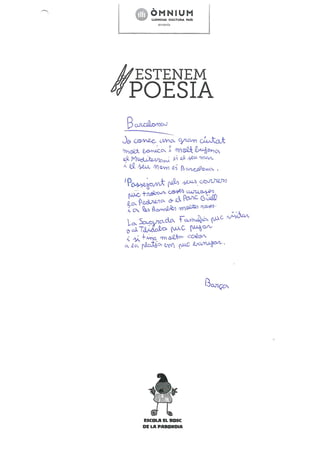 ÒMNIUM
LLENGUA CULTURA PAÍS
ESTENEM
POESIA
Barcelona
Jo conec una gran ciutat
molt bonica i molt
el Mediterrani és el seu mar
i el seu nom és Barcelona.
Passejant pels seus carrers
puc trobar coses curioses
La Pedrera o el Parc Güell
i a les Rambles moltes
La Sagrada Família puc visitar
o al Tibidabo puc pujar
i si tinc molta calor
a la platja em puc banyar.
ESCOLA EL BOSC
DE LA PABORDIA